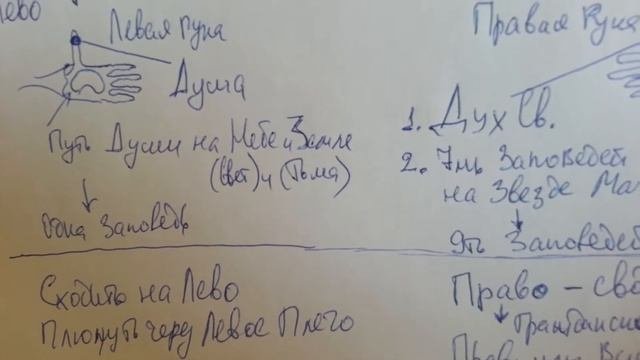 лево
Левая Рука
Душа
Путь Души на Небе и Земле
(Свет) и (Тьма)
Одна Заповедь
Сходить на Лево
Плюнуть через Левое Плечо
Правая Рука
1. Дух Св.
2. Заповедей
на Звезде Ма
9ть Заповедей
Право – сво
Гражданско